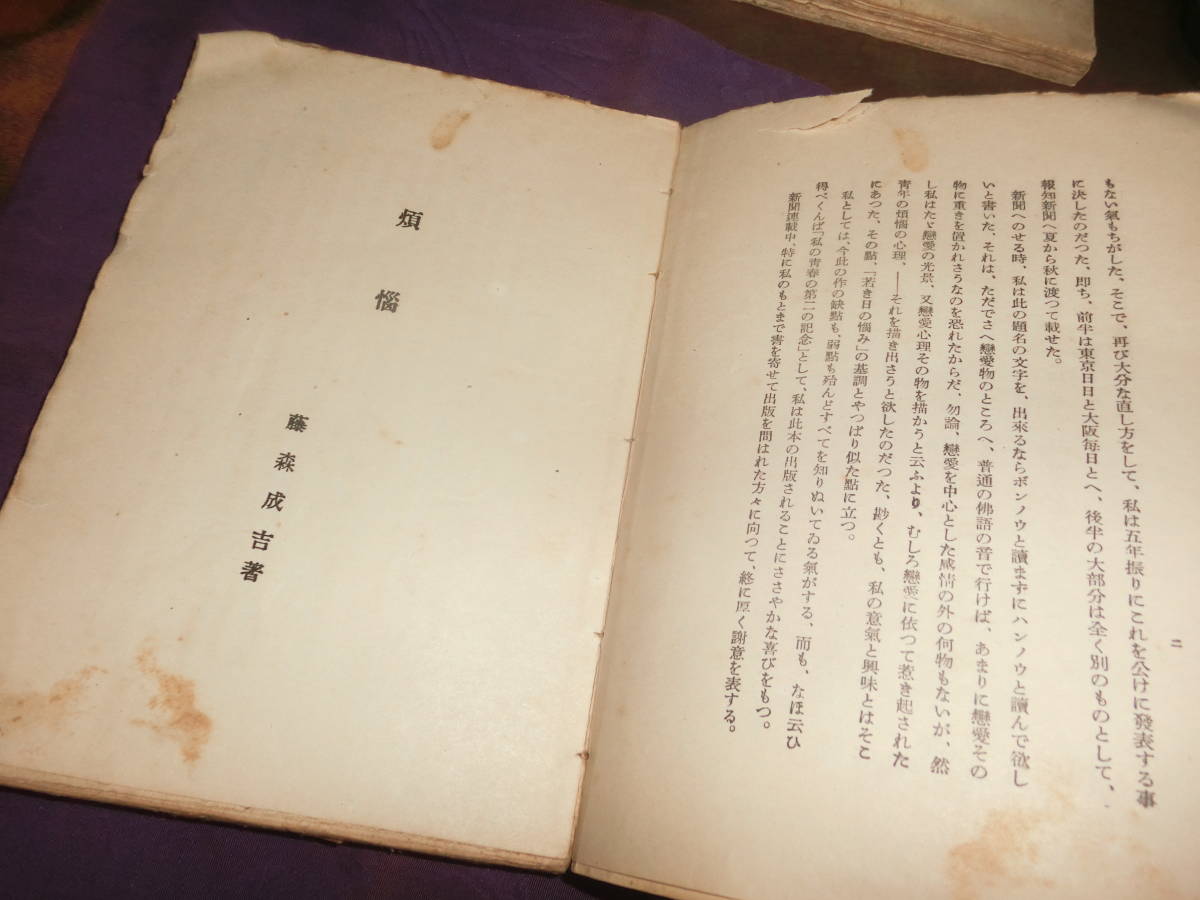 二
もない氣もちがした、そこで、再び大分な直し方をして、私は五年振りにこれを公けに發表する事
に決したのだつた、即ち、前半は東京日日と大阪毎日とへ、後半の大部分は全く別のものとして、
報知新聞へ夏から秋に渡つて載せた。
新聞へのせる時、私は此の題名の文字を、出來るならボンノウと讀まずにハンノウと讀んで欲し
いと書いた、それは、ただでさへ戀愛物のところへ、普通の佛語の音で行けば、あまりに戀愛その
物に重きを置かれさうなのを恐れたからだ、勿論、戀愛を中心とした感情の外の何物もないが、然
し私はたゞ戀愛の光景、又戀愛心理その物を描かうと云ふより、むしろ戀愛に依つて惹き起された
靑年の煩惱の心理、——それを描き出さうと欲したのだつた、尠くとも、私の意氣と興味とはそこ
にあつた、その點、「若き日の惱み」の基調とやつぱり似た點に立つ。
私としては、今此の作の缺點も、弱點も殆んどすべてを知りぬいてゐる氣がする、而も、なほ云ひ
得べくんば「私の靑春の第二の記念」として、私は此本の出版されることにささやかな喜びをもつ。
新聞連載中、特に私のもとまで書を寄せて出版を問はれた方々に向つて、終に厚く謝意を表する。
煩惱
藤森成吉著